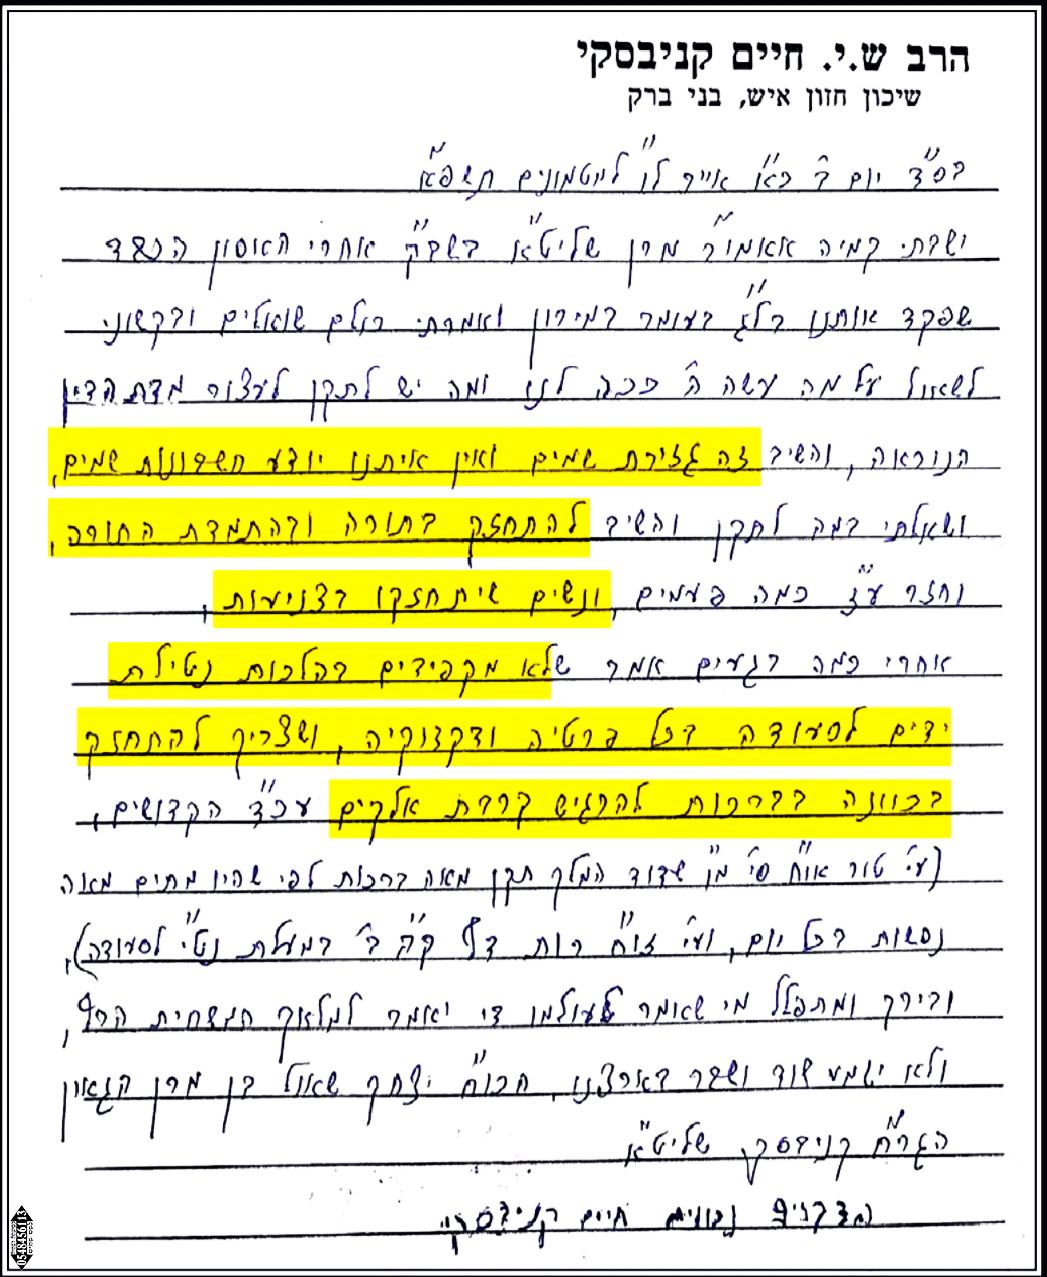 הרב ש.י. חיים קניבסקי
שיכון חזון איש, בני ברק
בס"ד יום ב' כא"ו אייר ל"ו למטמונים תשפ"א
ושבתי קמיה אאמו"ר מרן שליט"א בשבה"ק אחרי האסון הכבד
שפקד אותנו בל"ג בעומר במירון ואמרתי כולם שואלים ובקשוני
לשאול על מה עשה ה' ככה לנו ומה יש לתקן לעצור מדת הדין
הנוראה, והשיב זה גזירת שמים ואין איתנו יודע חשבונות שמים,
ושאלתי במה לתקן והשיב להתחזק בתורה ובהתמדת התורה,
וחזר ע"ז כמה פעמים, ונשים שיתחזקו בצניעות,
אחרי כמה רגעים אמר שלא מקפידים בהלכות נטילת
ידים לסעודה בכל פרטיה ודקדוקיה, ושצריך להתחזק
בכוונה בברכות להרגיש קרבת אלקים עכ"ד הקדושים,
(עי' טור או"ח סי' מ"ו שדוד המלך תקן מאה ברכות לפי שהיו מתים מאה
נפשות בכל יום, ועי' זו"ח רות דף ק"ק ב' במעלת נט"י לסעודה),
ובירך ומתפלל מי שאמר לעולמו די יאמר למלאך המשחית הרף,
ולא ישמע שוד ושבר בארצנו, הכו"ח יצחק שאול בן מרן הגאון
הגר"ח קניבסקי שליט"א
הדברים נכונים חיים קניבסקי
0548456113